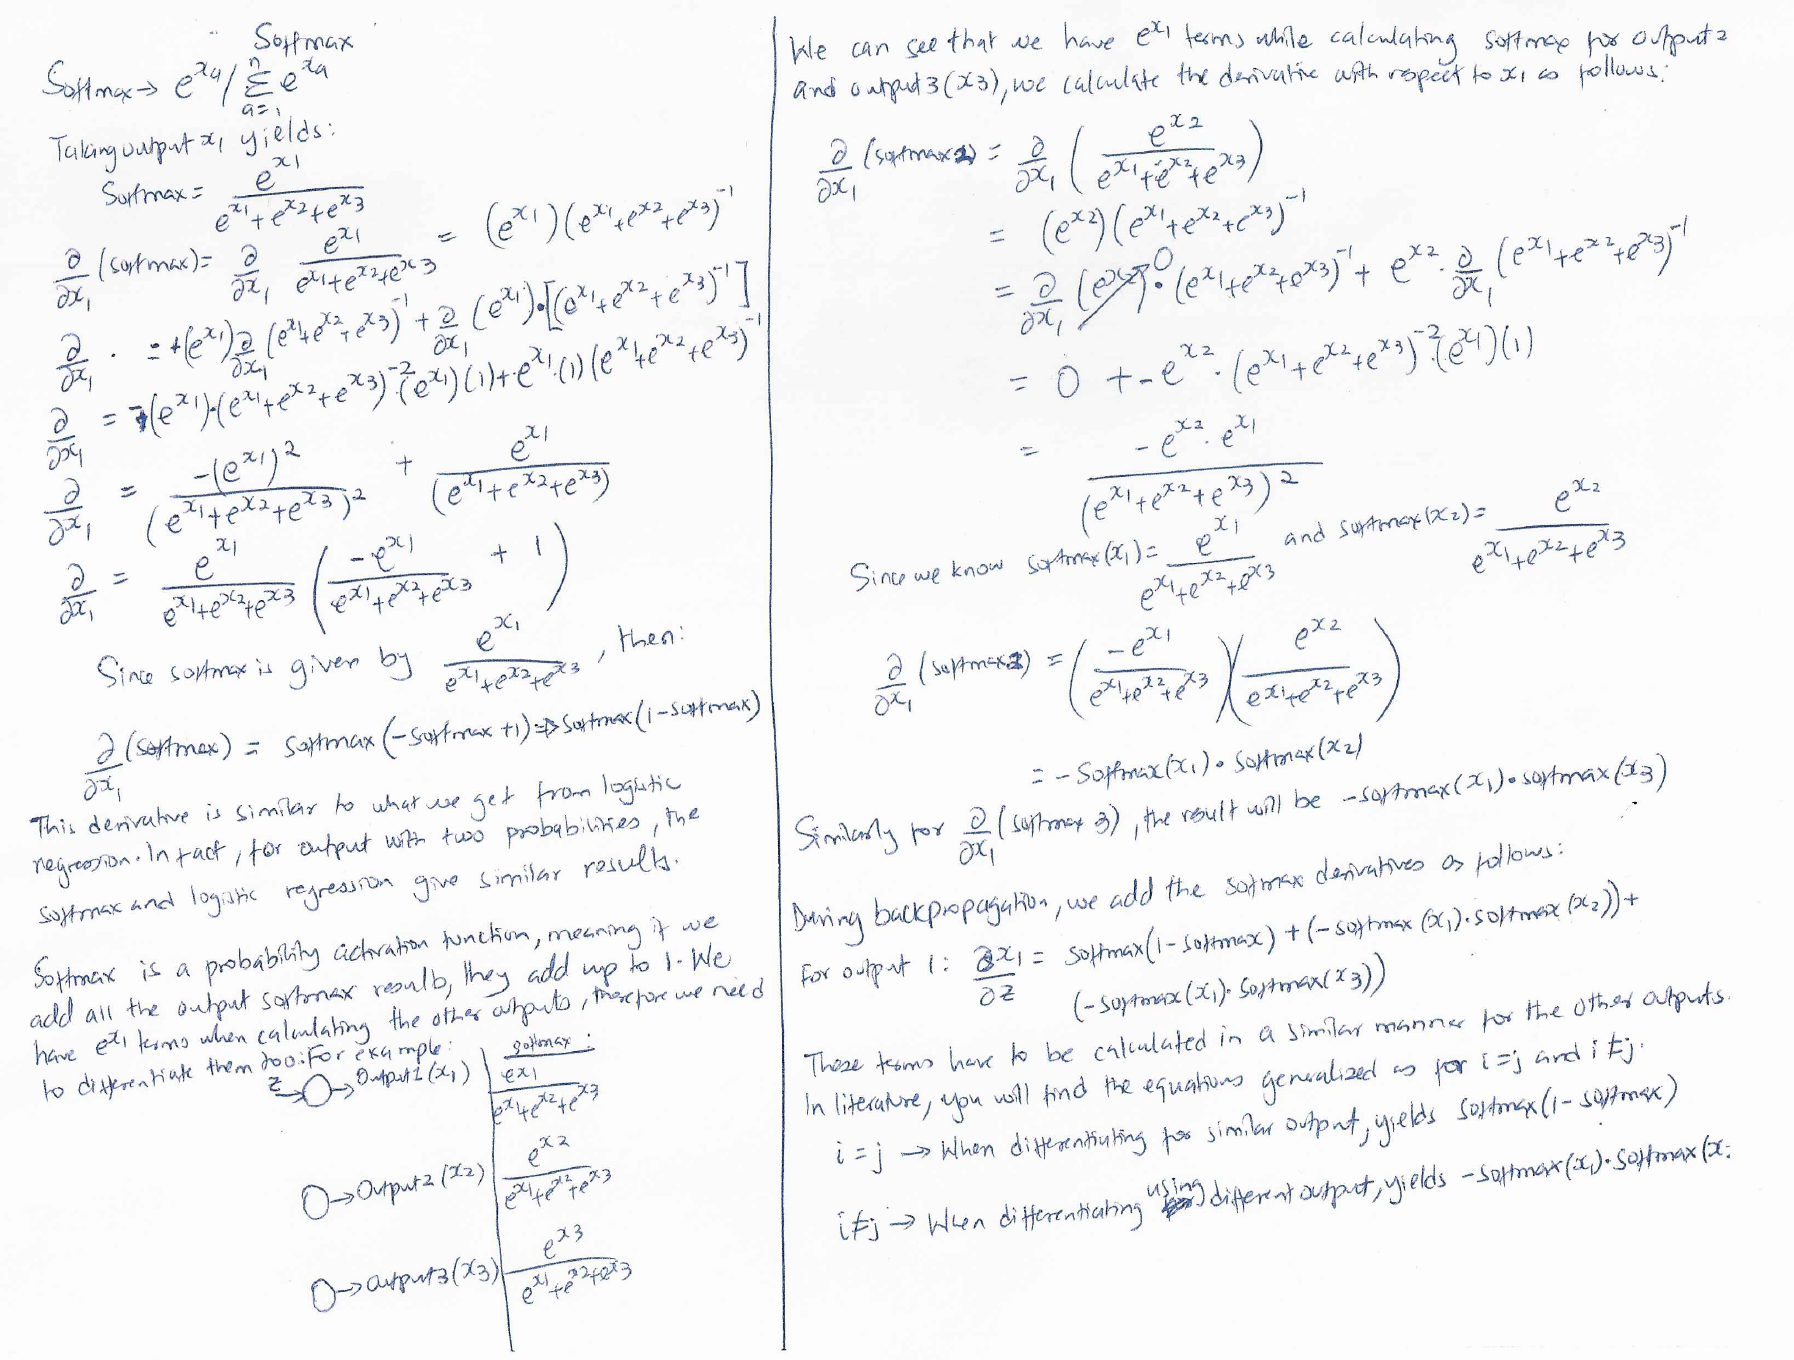 Softmax
Softmax → e^xa / Σ(a=1 to n) e^xa
Taking output x₁ yields:
Softmax = e^x1 / (e^x1+e^x2+e^x3)
∂/∂x₁ (softmax) = ∂/∂x₁ e^x1 / (e^x1+e^x2+e^x3) = (e^x1)(e^x1+e^x2+e^x3)^-1
∂/∂x₁ . = +(e^x1) ∂/∂x₁ (e^x1+e^x2+e^x3)^-1 + ∂/∂x₁ (e^x1)·[(e^x1+e^x2+e^x3)^-1]
∂/∂x₁ = -(e^x1)·(e^x1+e^x2+e^x3)^-2 (e^x1)(1) + e^x1·(1)(e^x1+e^x2+e^x3)^-1
∂/∂x₁ = -(e^x1)^2 / (e^x1+e^x2+e^x3)^2 + e^x1 / (e^x1+e^x2+e^x3)
∂/∂x₁ = e^x1 / (e^x1+e^x2+e^x3) (-e^x1 / (e^x1+e^x2+e^x3) + 1)
Since softmax is given by e^x1 / (e^x1+e^x2+e^x3), then:
∂/∂x₁ (softmax) = softmax(-softmax+1) ⇒ softmax(1-softmax)
This derivative is similar to what we get from logistic
regression. In fact, for output with two probabilities, the
softmax and logistic regression give similar results.
Softmax is a probability activation function, meaning if we
add all the output softmax results, they add up to 1. We
have e^x1 terms when calculating the other outputs, therefore we need
to differentiate them too. For example:
softmax:
z → O → Output 1 (x₁) | e^x1 / (e^x1+e^x2+e^x3)
O → Output 2 (x2) | e^x2 / (e^x1+e^x2+e^x3)
O → output 3 (x3) | e^x3 / (e^x1+e^x2+e^x3)
We can see that we have e^x1 terms while calculating softmax for output 2
and output 3 (x3), we calculate the derivative with respect to x₁ as follows:
∂/∂x₁ (softmax 2) = ∂/∂x₁ (e^x2 / (e^x1+e^x2+e^x3))
= (e^x2)(e^x1+e^x2+e^x3)^-1
= ∂/∂x₁ (e^x2)→0 · (e^x1+e^x2+e^x3)^-1 + e^x2 · ∂/∂x₁ (e^x1+e^x2+e^x3)^-1
= 0 + -e^x2 · (e^x1+e^x2+e^x3)^-2 (e^x1)(1)
= -e^x2 · e^x1 / (e^x1+e^x2+e^x3)^2
Since we know softmax(x₁) = e^x1 / (e^x1+e^x2+e^x3) and softmax(x2) = e^x2 / (e^x1+e^x2+e^x3)
∂/∂x₁ (softmax 2) = (-e^x1 / (e^x1+e^x2+e^x3)) (e^x2 / (e^x1+e^x2+e^x3))
= -Softmax(x₁)·Softmax(x2)
Similarly for ∂/∂x₁ (softmax 3), the result will be -softmax(x₁)·softmax(x3)
During backpropagation, we add the softmax derivatives as follows:
For output 1: ∂x₁/∂z = softmax(1-softmax) + (-softmax(x₁)·softmax(x2)) +
(-softmax(x₁)·softmax(x3))
These terms have to be calculated in a similar manner for the other outputs.
In literature, you will find the equations generalized as for i=j and i≠j.
i=j → When differentiating for similar output, yields softmax(1-softmax)
i≠j → When differentiating using different output, yields -softmax(x₁)·softmax(x: